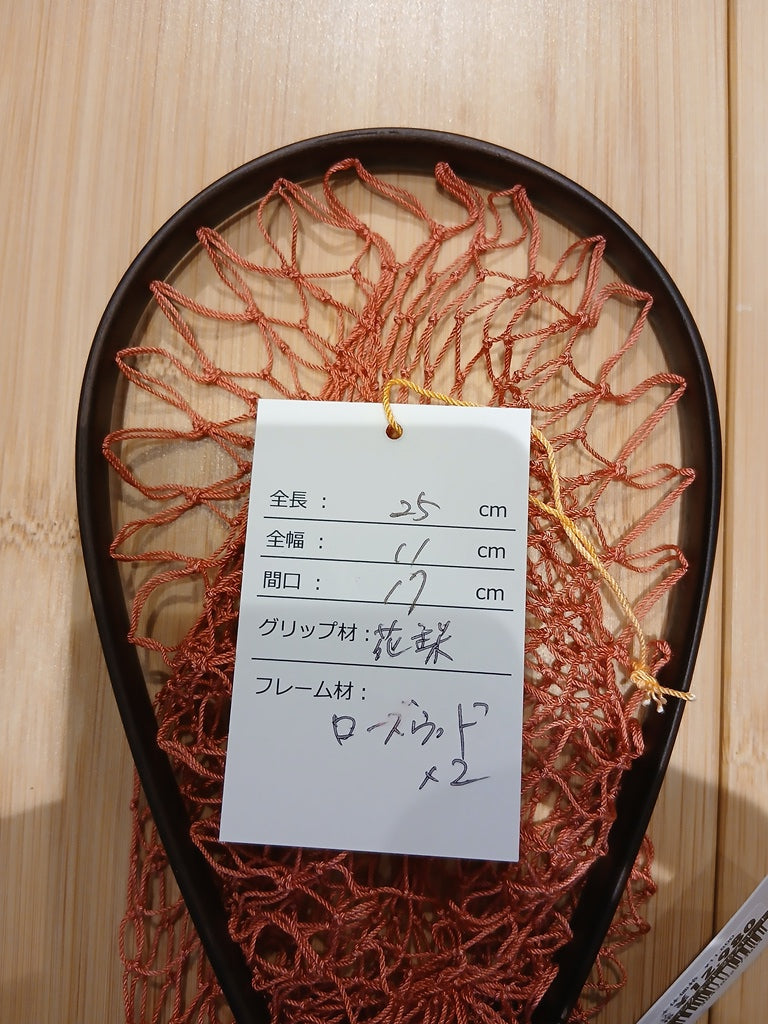 全長： 25 cm
全幅： 11 cm
間口： 17 cm
グリップ材：花梨
フレーム材：
ローズウッド
×2